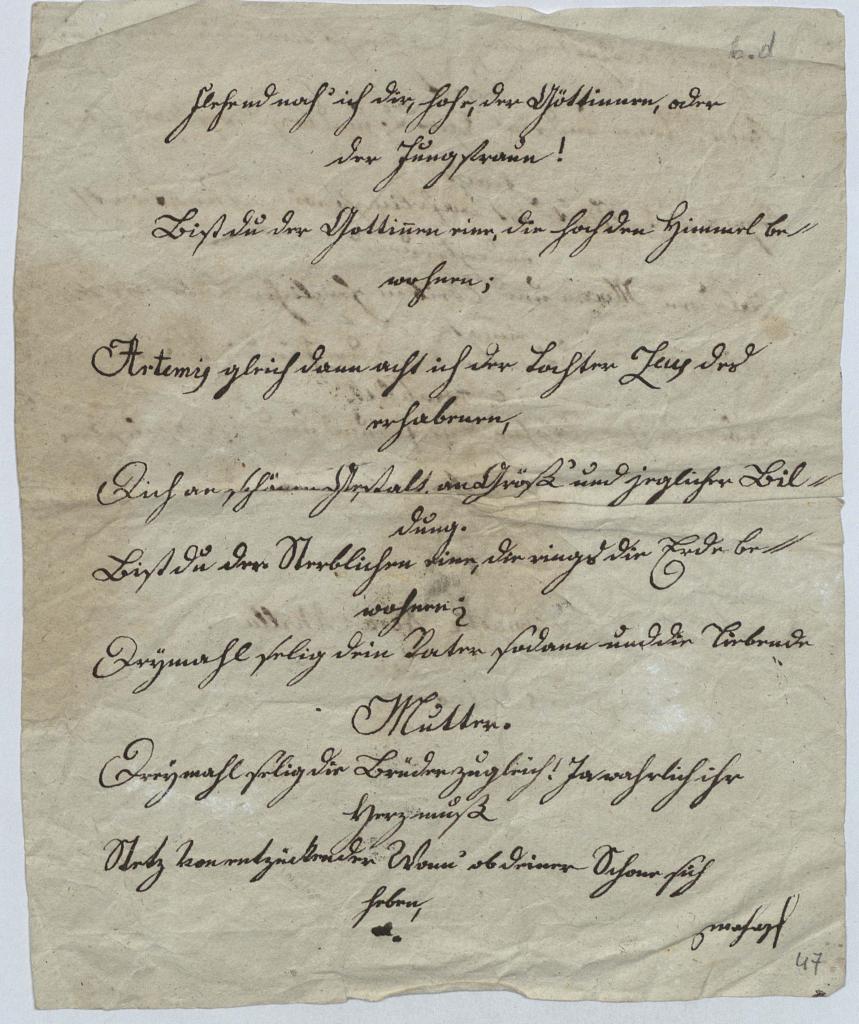 b.d
Flehend nah' ich dir, hohe, der Göttinnen, oder
der Jungfraun!
Bist du der Gottinen eine, die hoch den Himmel be//
wohnen;
Artemis gleich dann acht ich der Tochter Zeus des
erhabenen,
Dich an schöner Gestalt, an Größ' und jeglicher Bil//
dung.
Bist du der Sterblichen eine, die rings die Erde be//
wohnen;
Drymahl selig dein Vater sodann und die Liebende
Mutter.
Dreymahl selig die Brüder zugleich! Ja wahrlich ihr
Herz muß
Stetz von entzückender Wonn' ob deiner Schone sich
heben,
47